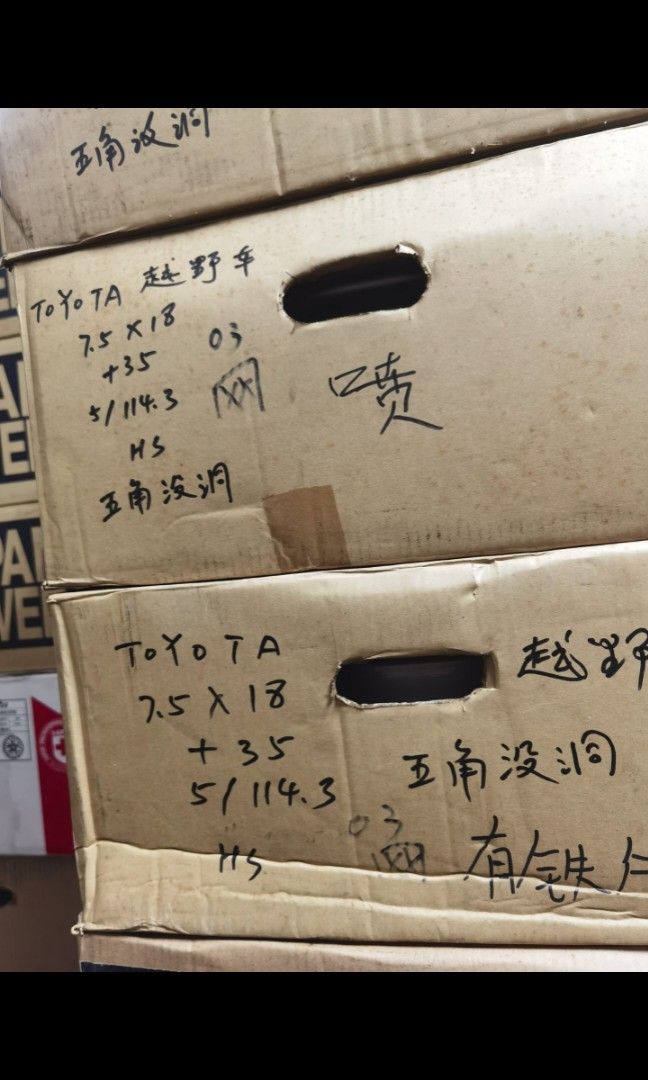 五角没洞
TOYOTA 越野车
7.5 X 18
+35
5/114.3
HS
五角没洞
03
网
喷
TOYOTA
7.5 X 18
+35
5/114.3
HS
越野
五角没洞
03
网
有铁